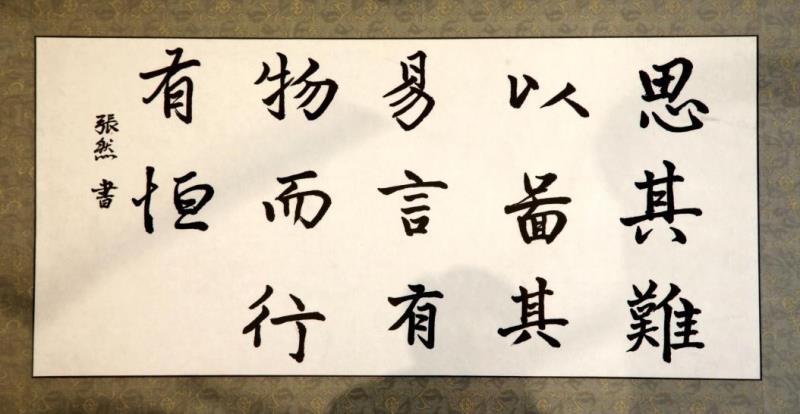 思其難
以啚其
易言有
物而行
有恒
張然 書